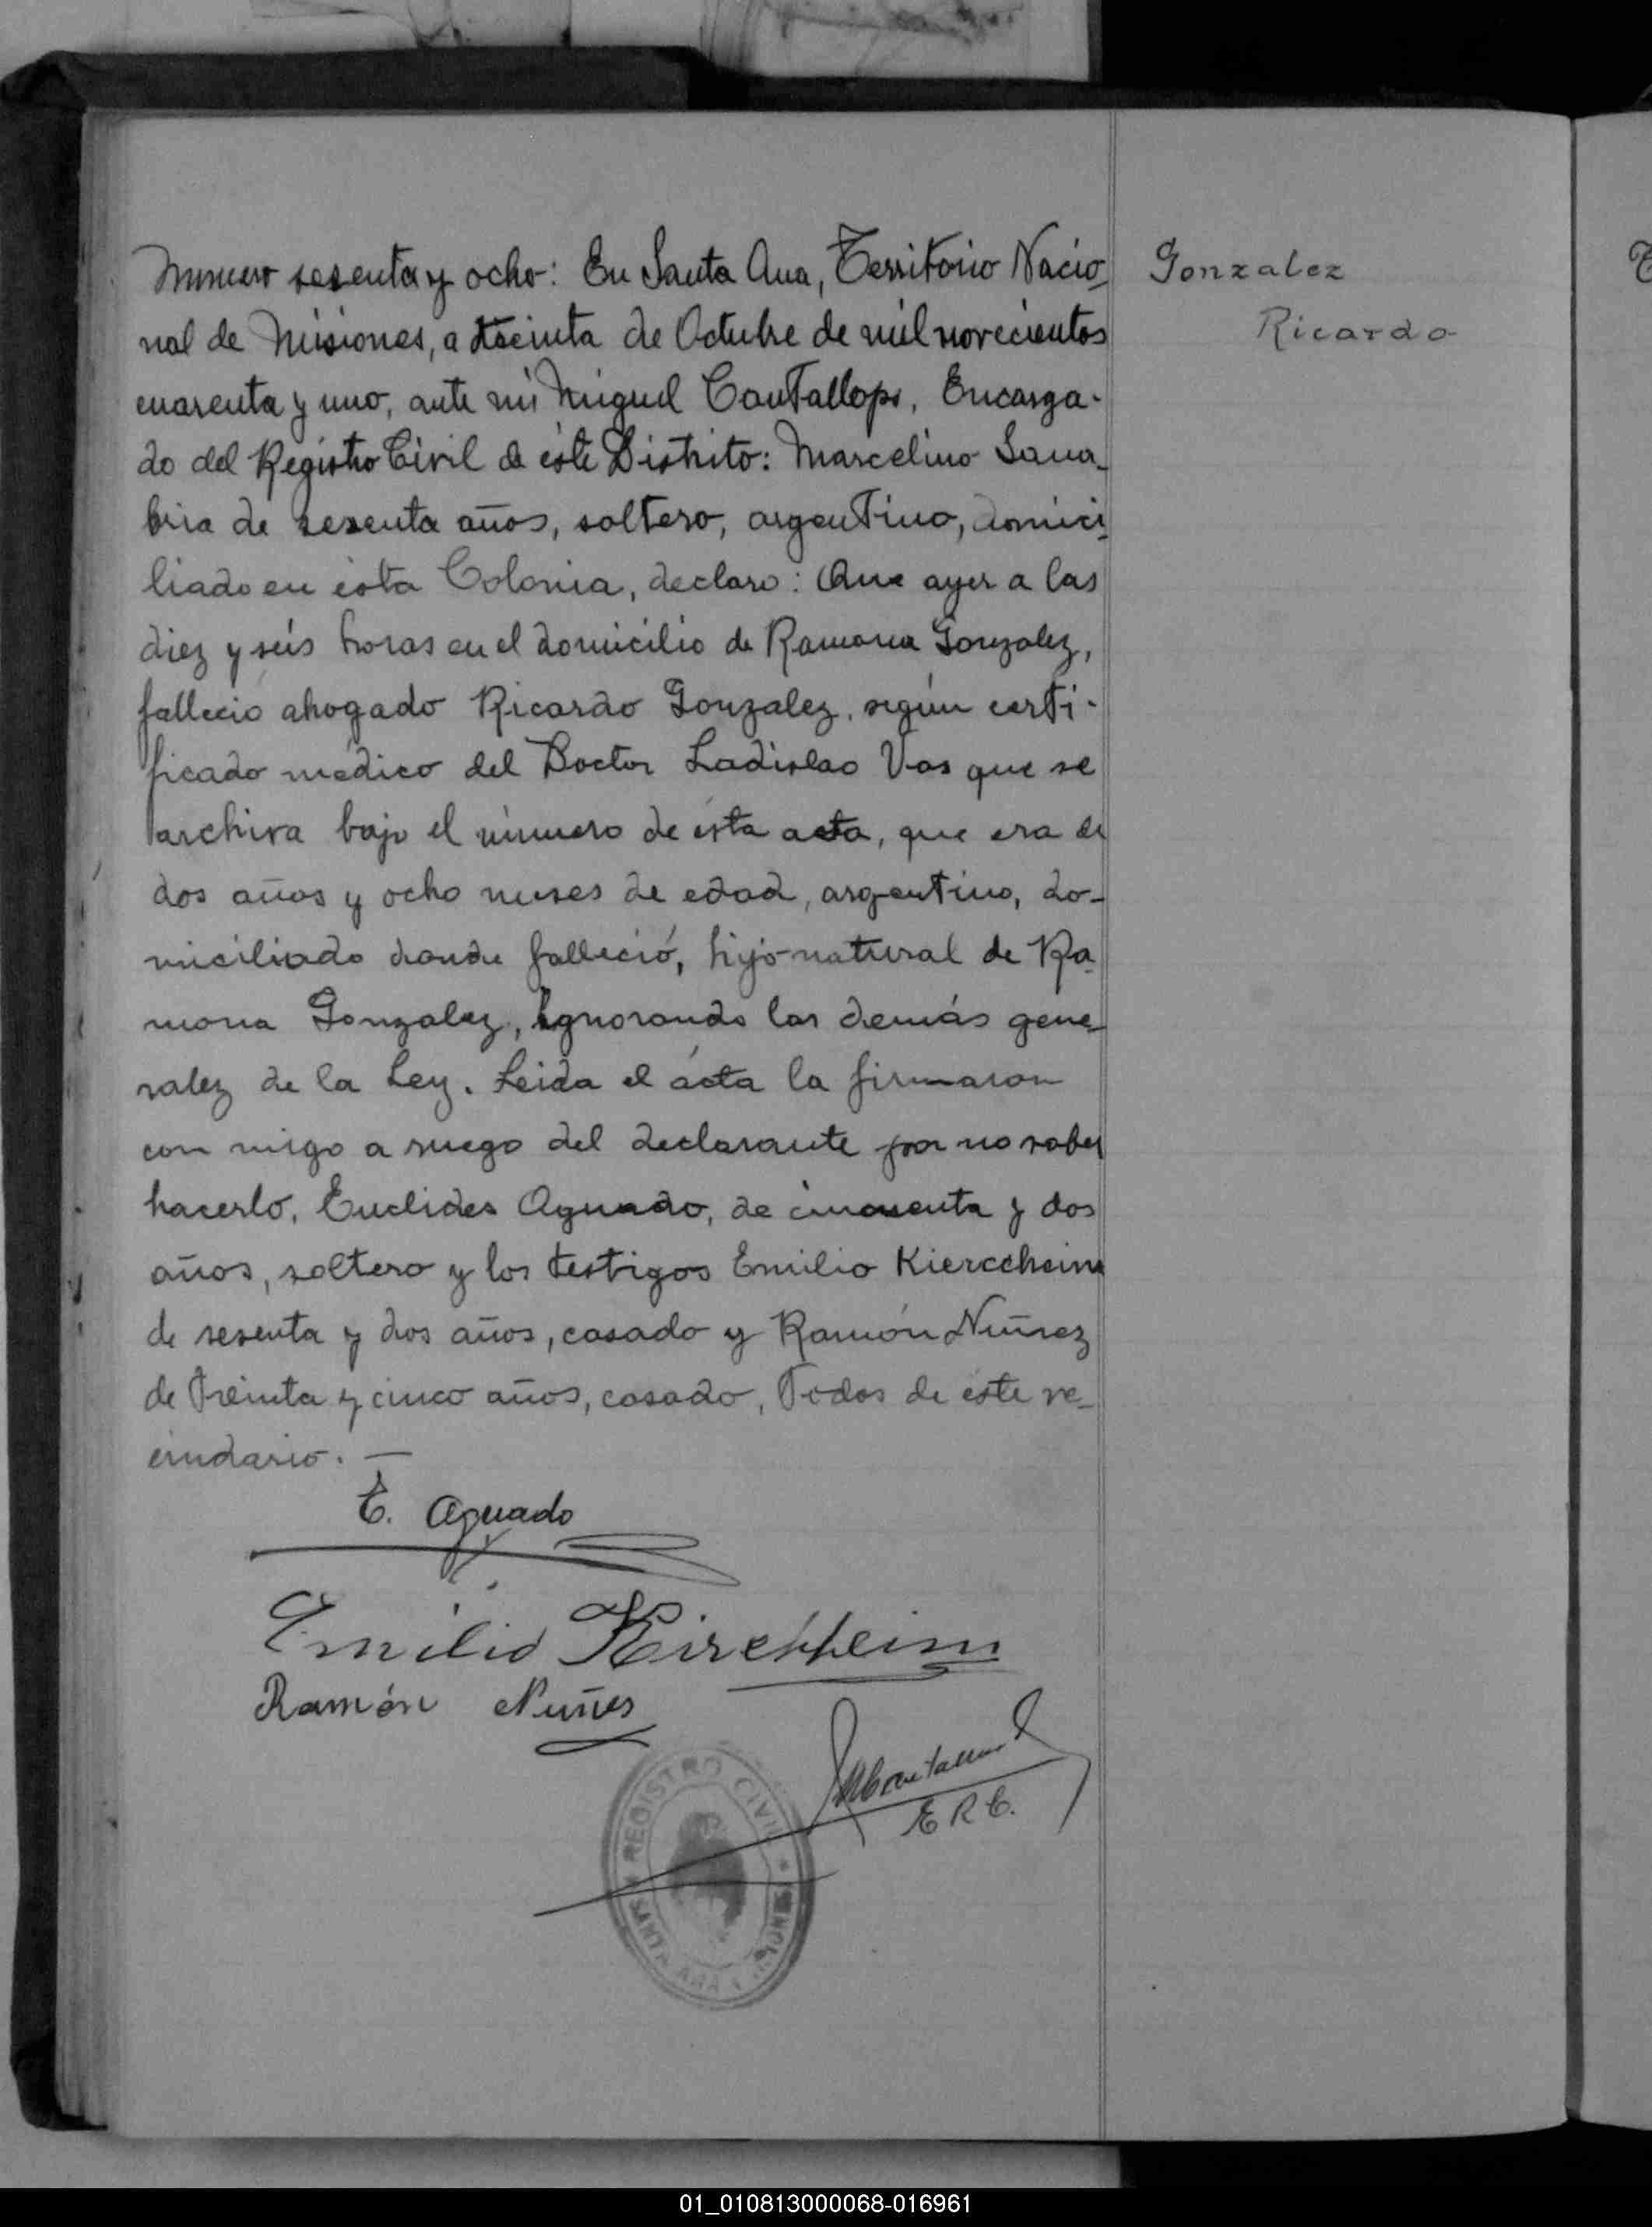 Numero sesenta y ocho: En Santa Ana, Territorio Nacio-
nal de Misiones, a treinta de Octubre de mil novecientos
cuarenta y uno, ante mi Miguel Cantallops, Encarga-
do del Registro Civil de éste Distrito: Marcelino Sana-
bria de sesenta años, soltero, argentino, domici-
liado en ésta Colonia, declaro: Que ayer a las
diez y seis horas en el domicilio de Ramona Gonzalez,
fallecio ahogado Ricardo Gonzalez, según certi-
ficado médico del Doctor Ladislao Vas que se
archiva bajo el número de ésta acta, que era de
dos años y ocho meses de edad, argentino, do-
miciliado donde falleció, hijo natural de Ra-
mona Gonzalez, ignorando las demás gene-
ralez de la Ley. Leida el ácta la firmaron
con migo a ruego del declarante por no saber
hacerlo, Euclides Aguado, de cincuenta y dos
años, soltero y los testigos Emilio Kiercheim
de sesenta y dos años, casado y Ramón Nuñez
de Treinta y cinco años, casado, Todos de éste ve-
cindario. —
Gonzalez
Ricardo
E. Aguado
Emilio Kirchheim
Ramón Nuñes
E R C.
REGISTRO CIVIL
SANTA ANA
01_010813000068-016961